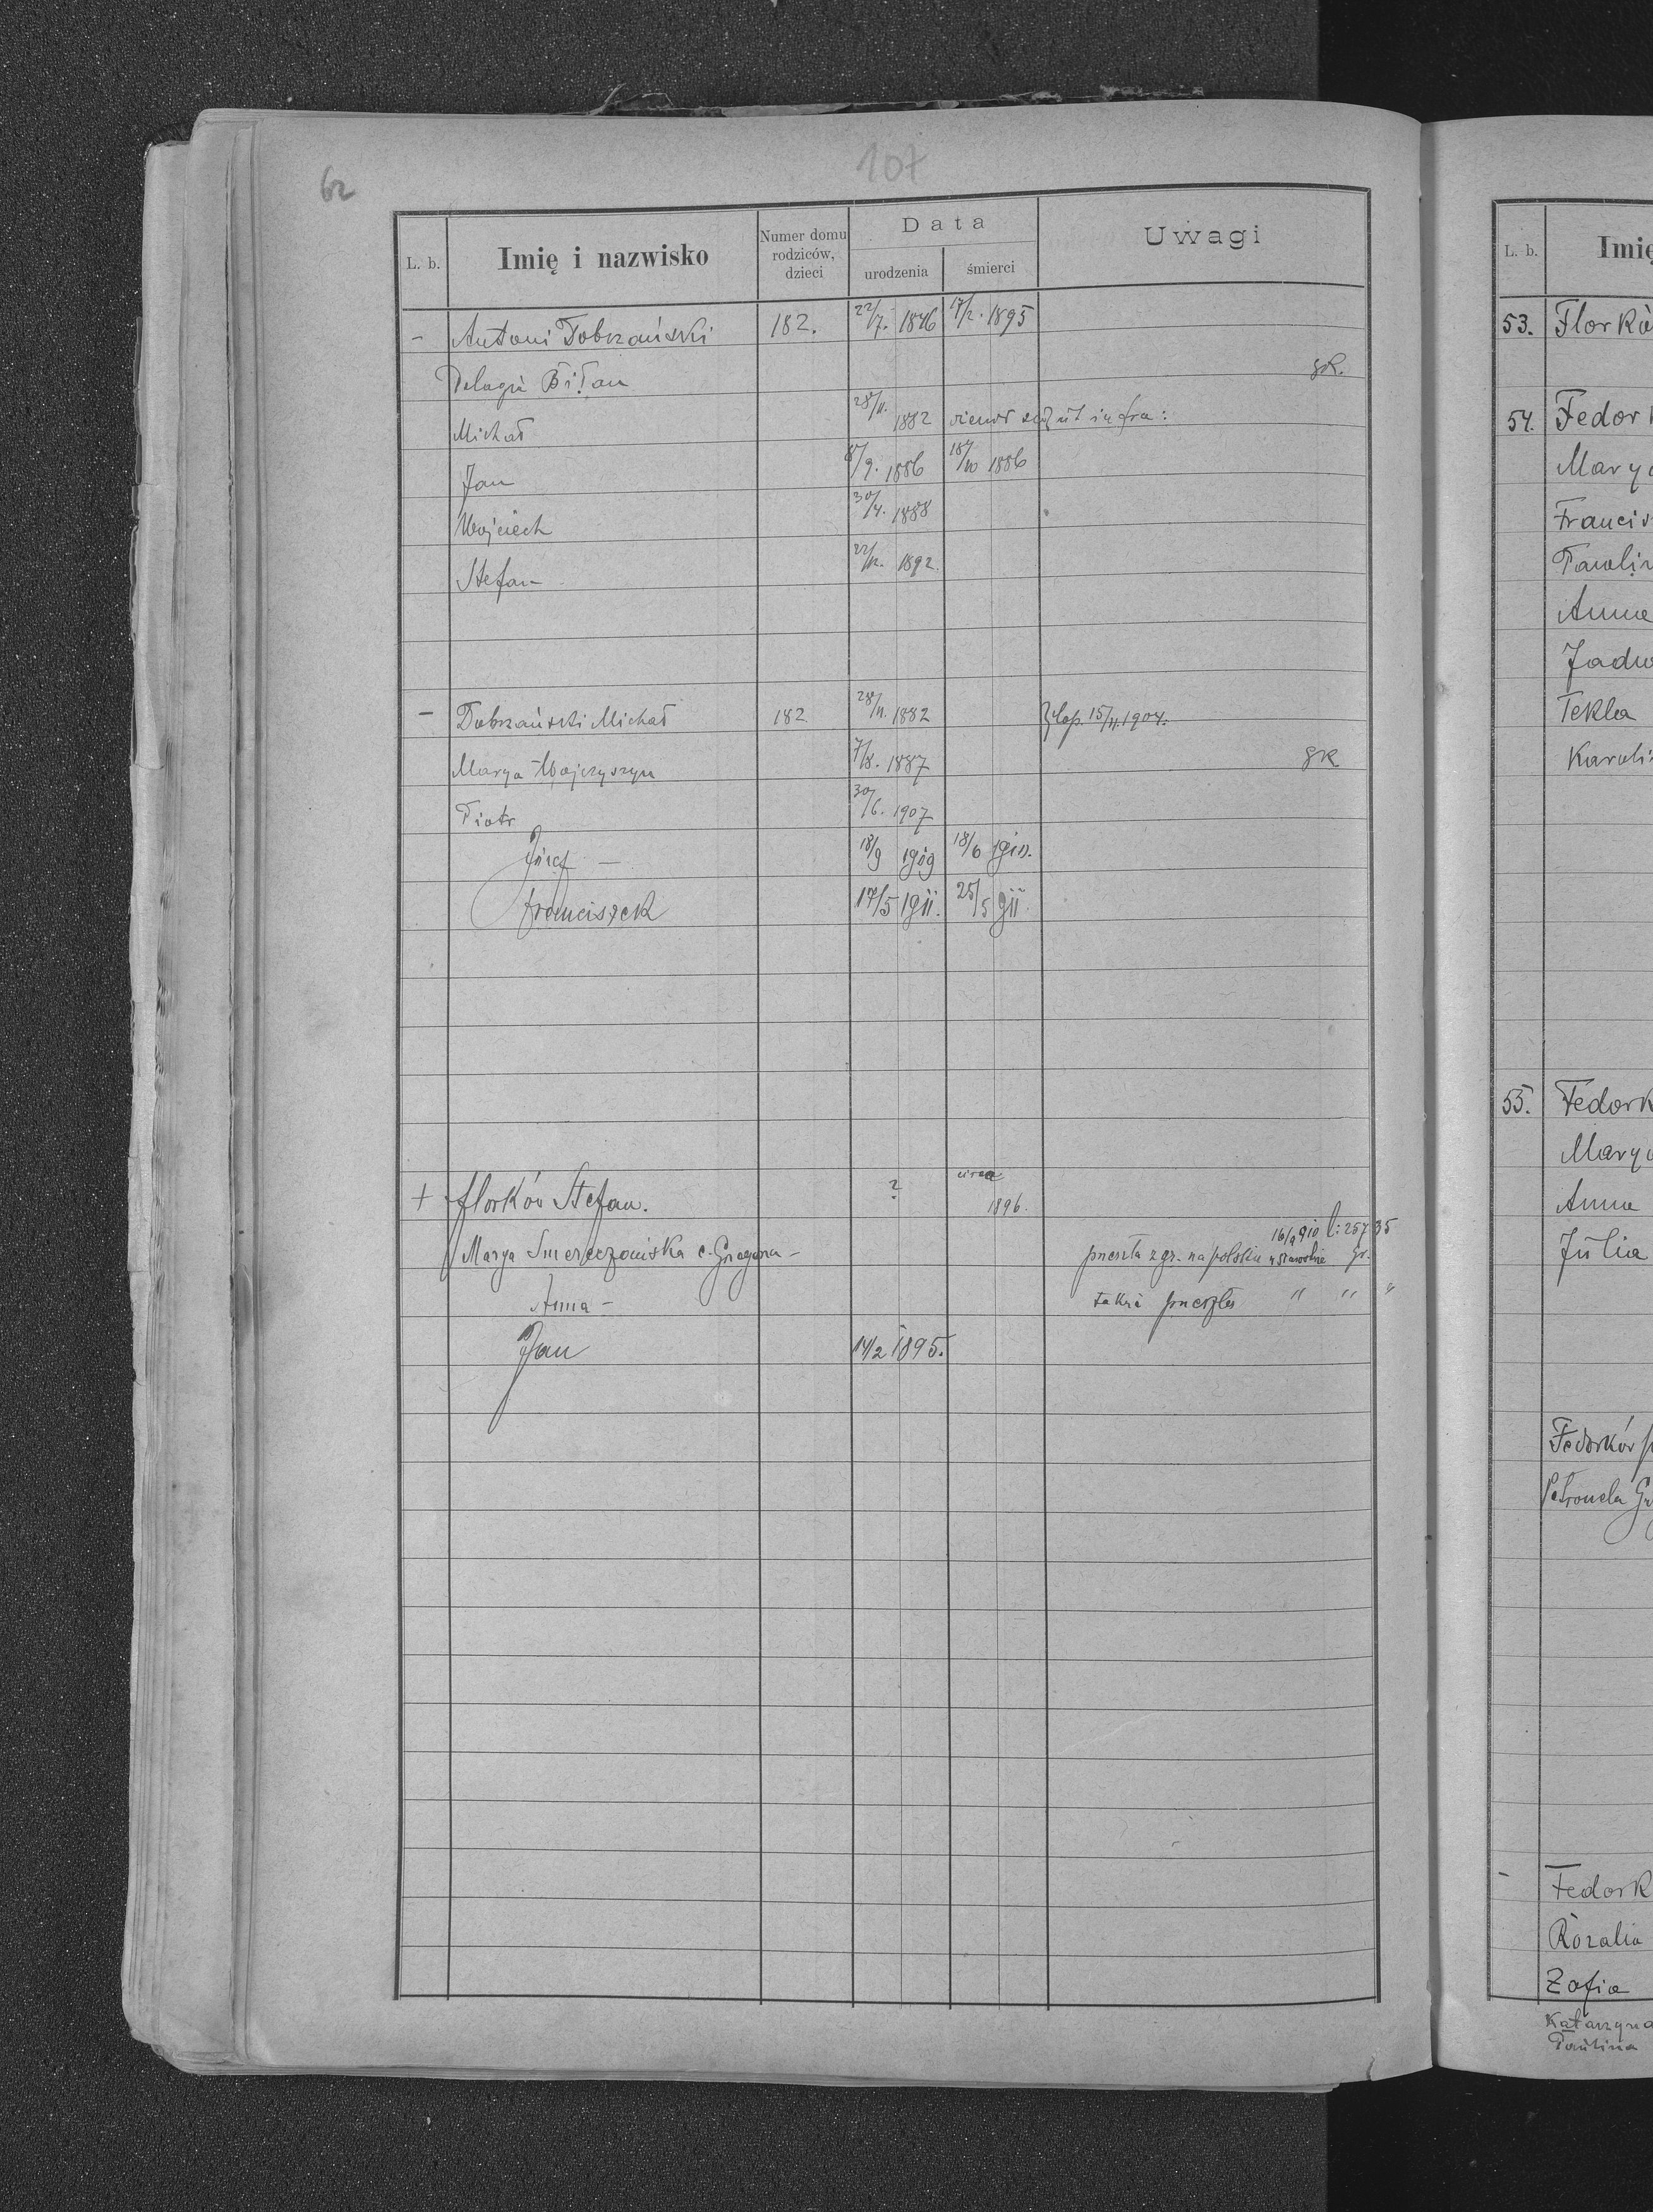 62
107
L. b. Imię i nazwisko Numer domu rodziców, dzieci Data urodzenia śmierci Uwagi
- Antoni Dobrzański 182. 22/7. 1846 17/2. 1895
Pelagia Biłan gk.
Michał 28/11. 1882 ut infra:
Jan 8/9. 1886 18/10 1886
Wojciech 30/4. 1888
Stefan 22/12. 1892.
- Dobrzański Michał 182 28/11. 1882 15/11. 1904.
Marya Wojczyszyn 7/8. 1887 gk
Piotr 30/6. 1907
Józef - 18/9 1909 18/6 1910.
Franciszek 17/5 1911. 25/5 911.
+ Florków Stefan. ? circa 1896.
16/9 910 l: 257 35
Marya c. Grzegorza - z gr. na
Anna - także " " "
Jan 14/2 1895.
L. b. Imię
53. Florkó
54. Fedork
Marya
Francis
Paulin
Anna
Jadw
Tekla
Karoli
55. Fedork
Marya
Anna
Julia
Fedorków
Petronela
- Fedork
Rozalia
Zofia
Katarzyna
Paulina